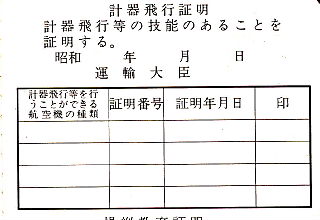 計器飛行証明
計器飛行等の技能のあることを
証明する。
昭和 年 月 日
運輸大臣
計器飛行等を行
うことができる
航空機の種類
証明番号 証明年月日 印